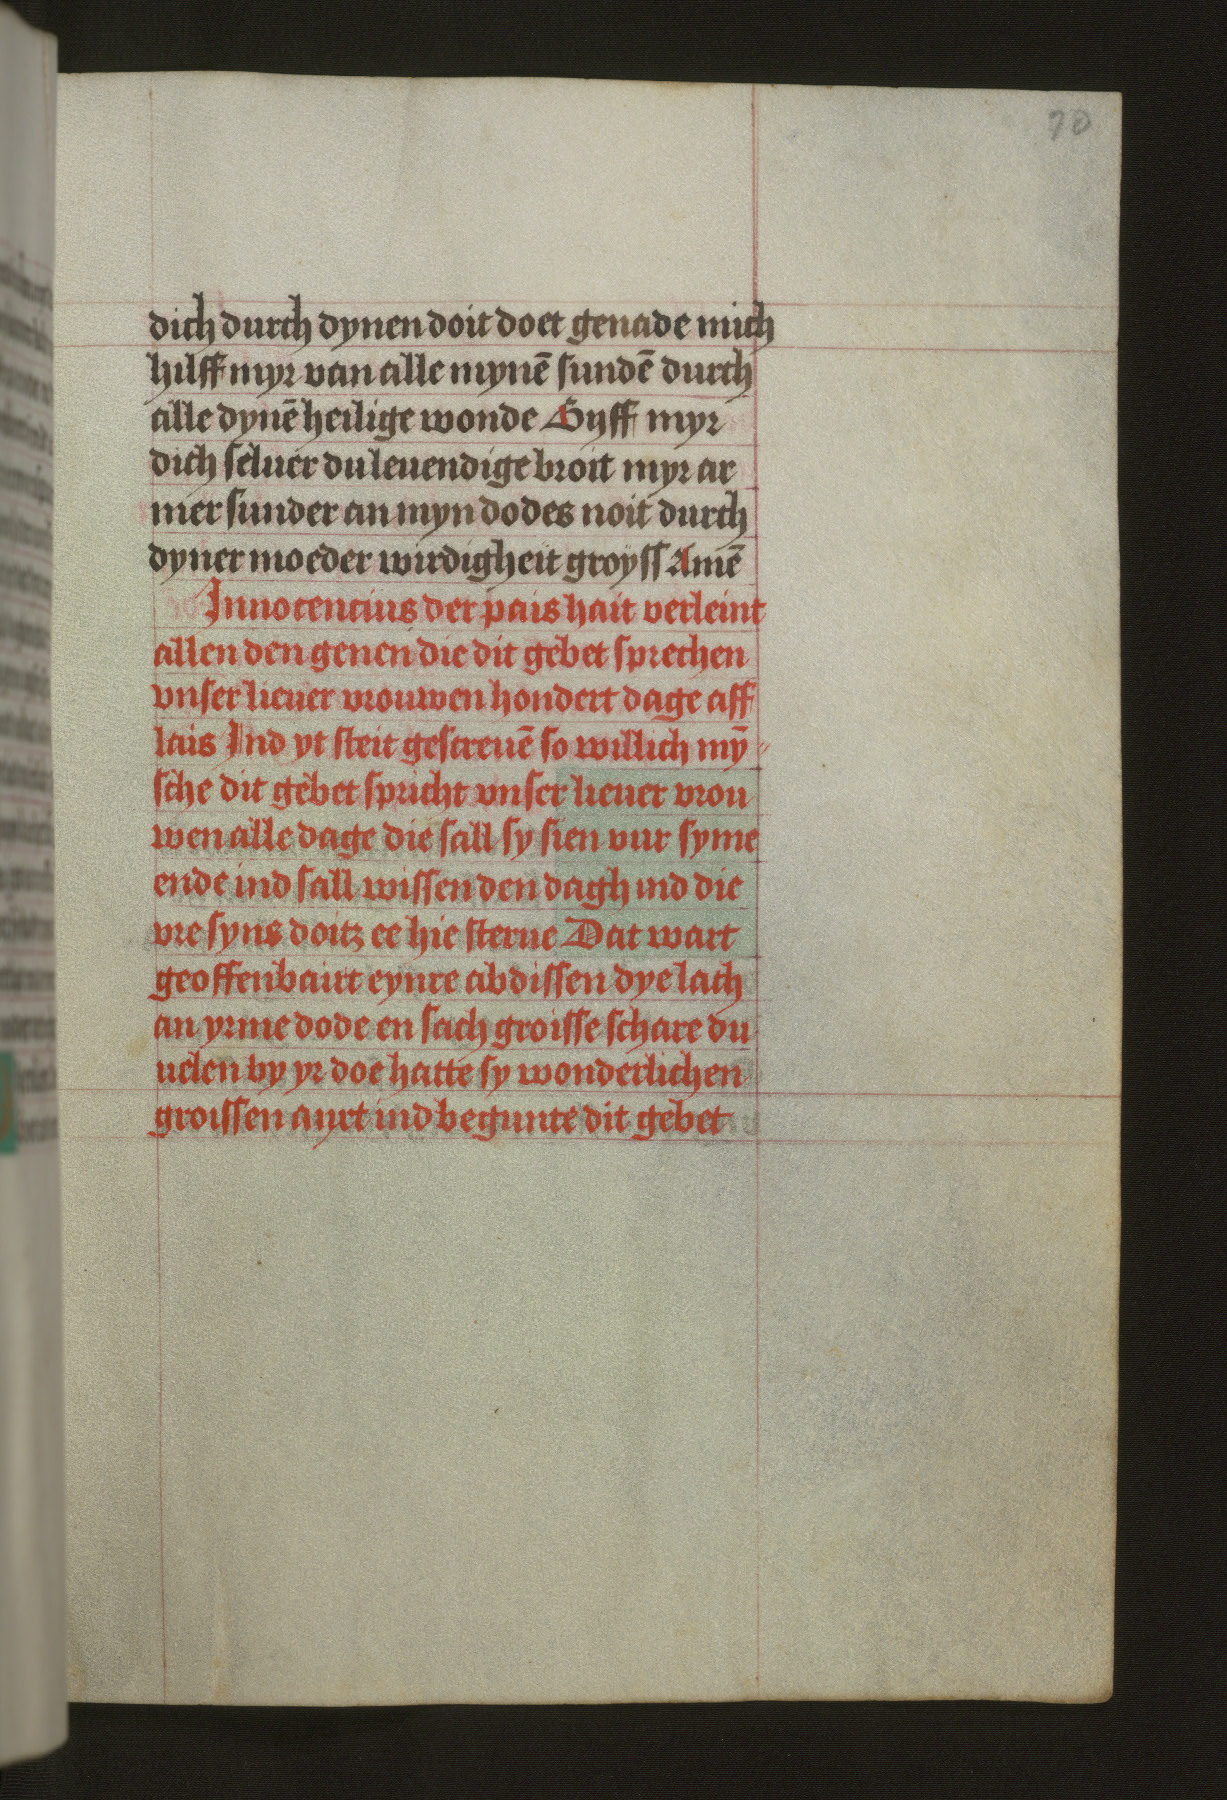 70
dich durch dynen doit doet genade mich
hilff myr van alle mynē sundē durch
alle dynē heilige wonde Gyff myr
dich seluer du leuendige broit myr ar
mer sunder an myn dodes noit durch
dyner moeder wirdigheit groyss Amē
Innocencius der pais hait verleint
allen den genen die dit gebet sprechen
vnser lieuer vrouwen hondert dage aff
lais Ind yt steit gescreuē so willich mȳ
sche dit gebet spricht vnser lieuer vrou
wen alle dage die sall sy sien vur syme
ende ind sall wissen den dagh ind die
vre syns doitz ee hie sterue Dat wart
geoffenbairt eynre abdissen dye lach
an yrme dode en sach groisse schare du
uelen by yr doe hatte sy wonderlichen
groissen anxt ind begunte dit gebet